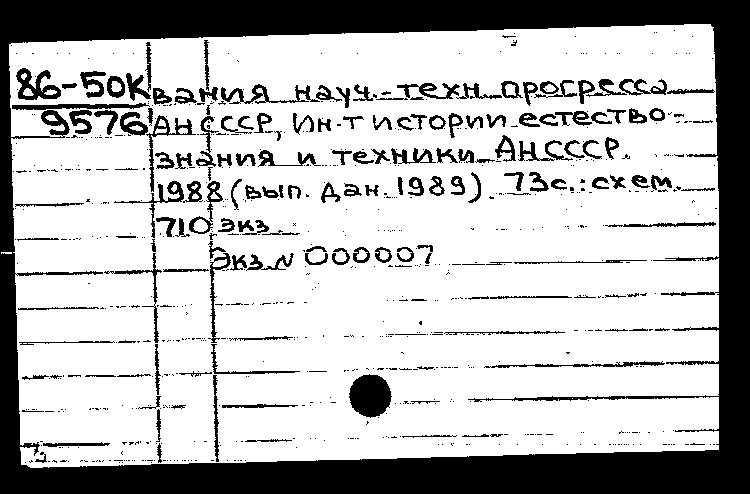 86-50К вания науч.-техн. прогресса
9576 АН СССР, Ин-т истории естество-
знания и техники АН СССР.
1988 (вып. дан. 1989). 73с.: схем.
710 экз.
Экз. N 000007